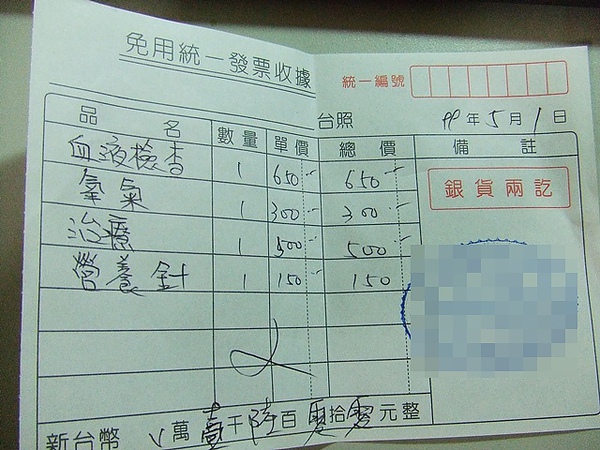 免用統一發票收據
統一編號
台照 99年5月1日
品名 數量 單價 總價 備註
血液檢查 1 650 650
氧氣 1 300 300
治療 1 500 500
營養針 1 150 150
銀貨兩訖
新台幣 V萬壹千陸百零拾零元整